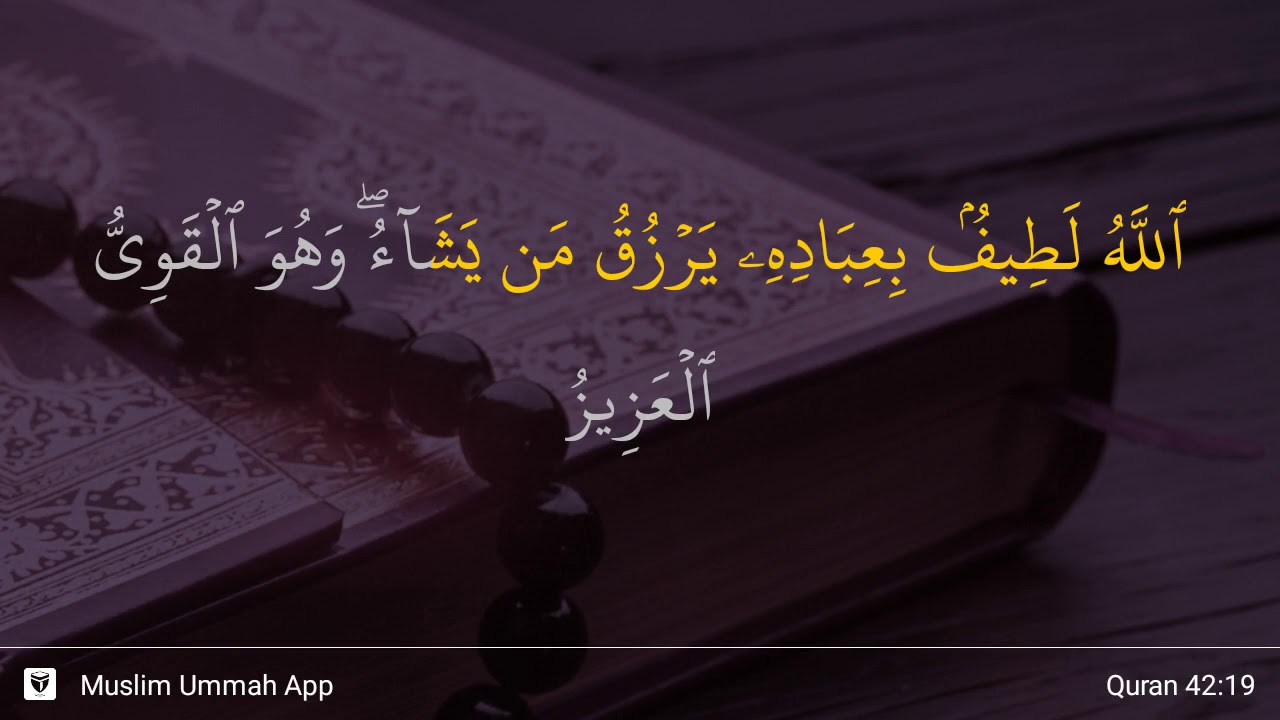 ٱللَّهُ لَطِيفُۢ بِعِبَادِهِۦ يَرۡزُقُ مَن يَشَآءُۖ وَهُوَ ٱلۡقَوِيُّ
ٱلۡعَزِيزُ
Muslim Ummah App
Quran 42:19